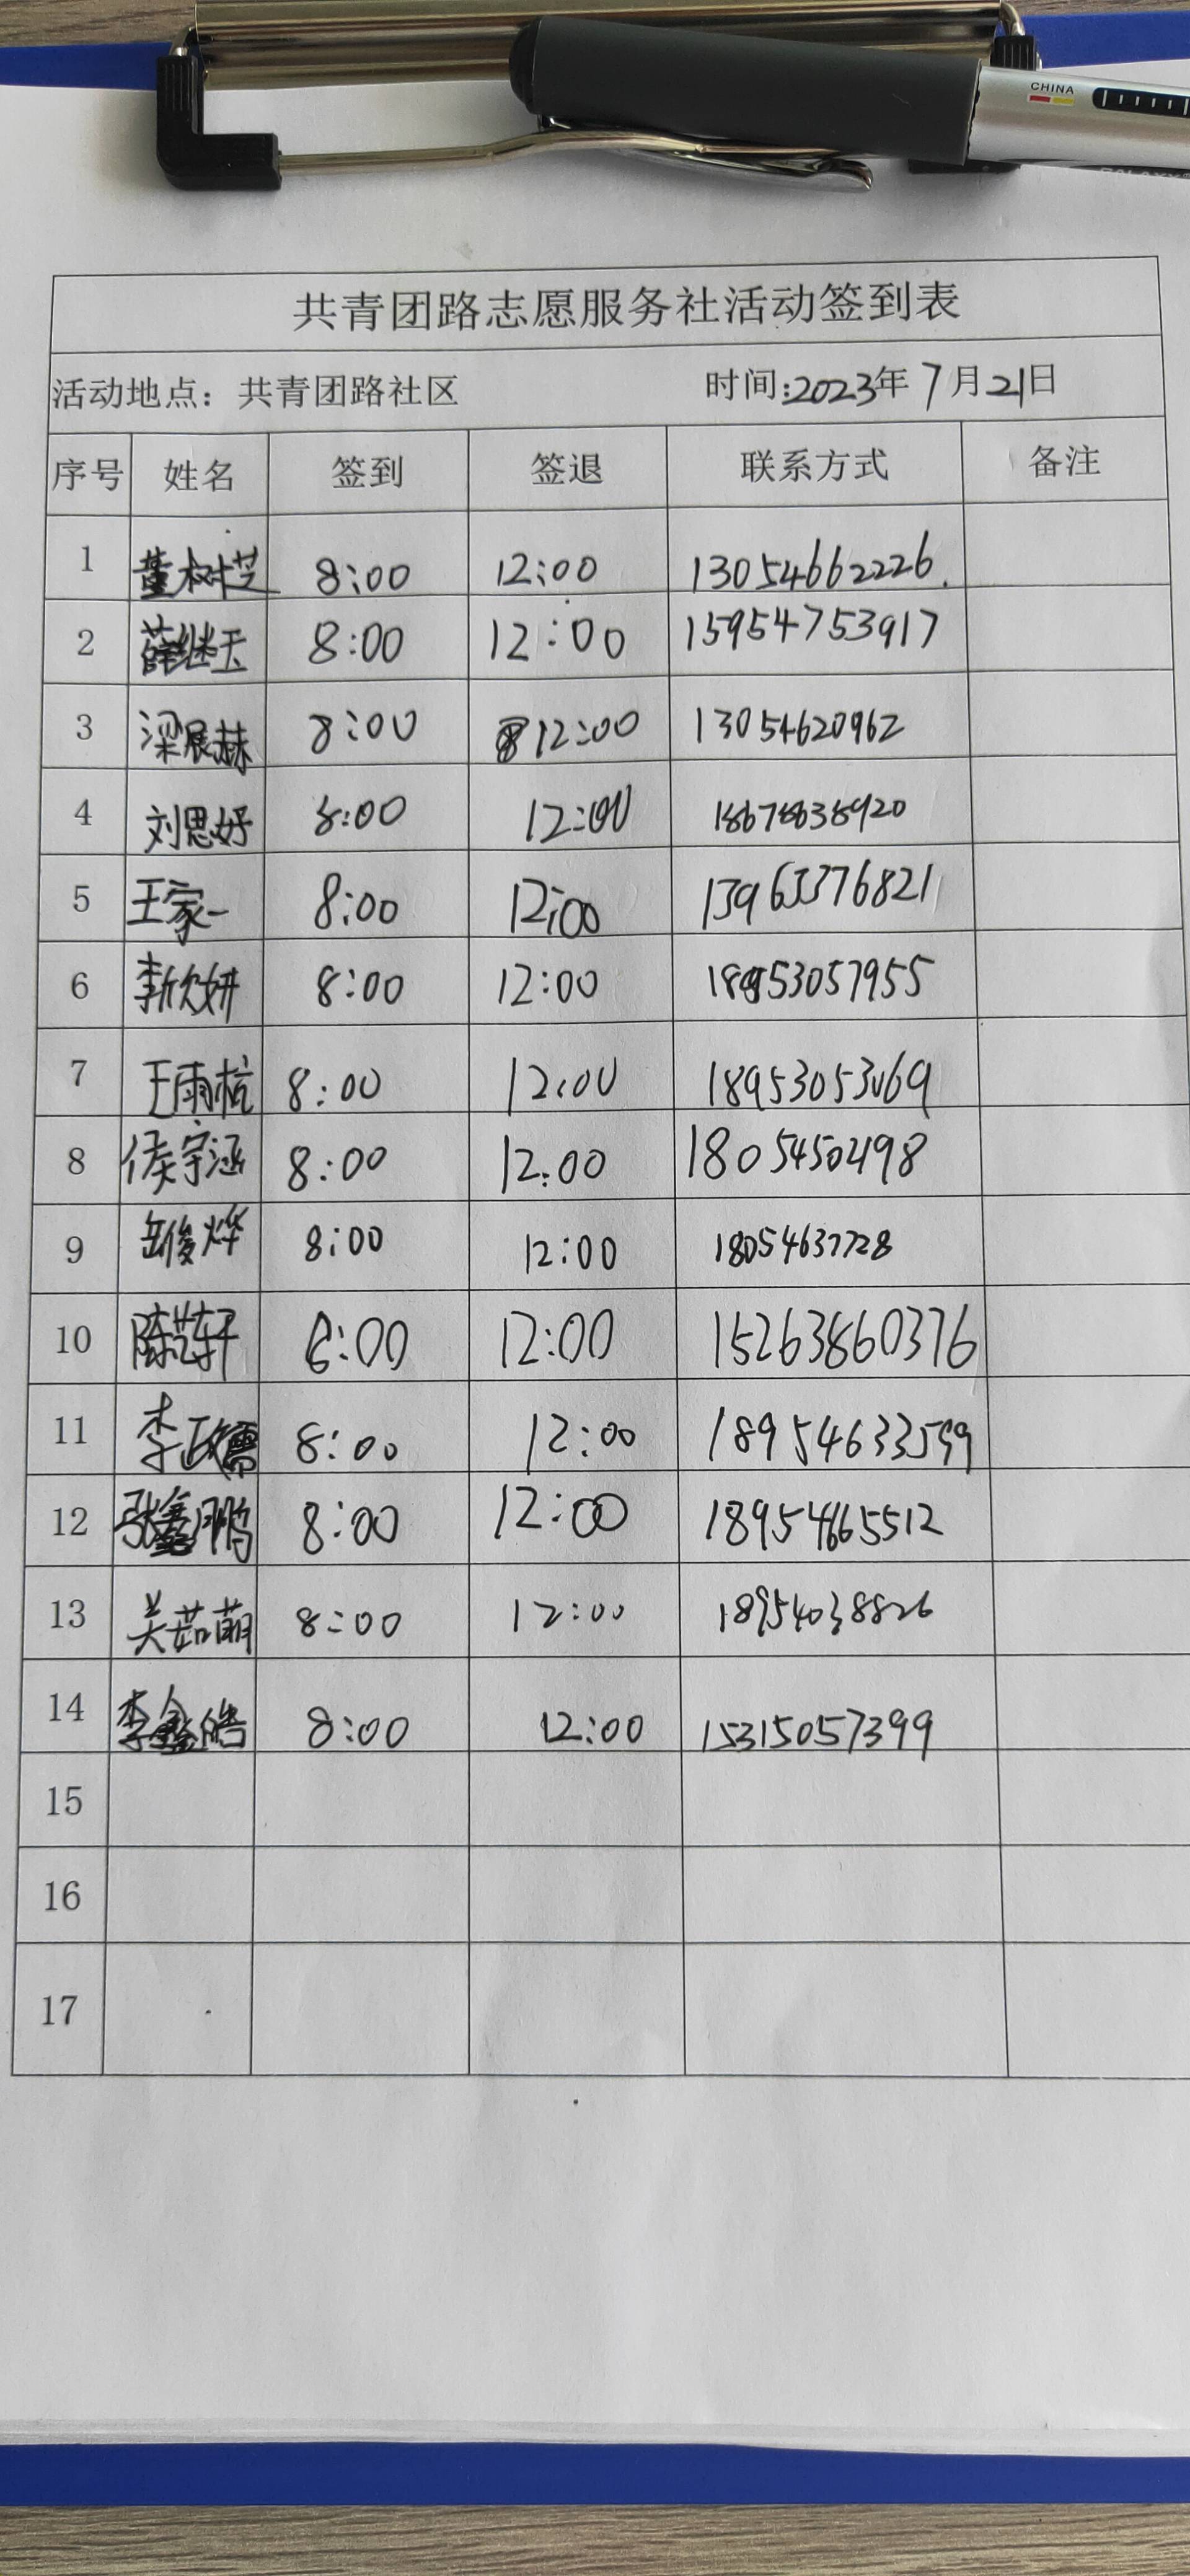 CHINA
共青团路志愿服务社活动签到表
活动地点：共青团路社区 时间:2023年7月21日
序号 姓名 签到 签退 联系方式 备注
1 董树芝 8:00 12:00 13054662226
2 薛继玉 8:00 12:00 15954753917
3 梁辰赫 8:00 12:00 13054620962
4 刘思妤 8:00 12:00 18678638920
5 王家一 8:00 12:00 13963376821
6 李欣妍 8:00 12:00 18953057955
7 王雨杭 8:00 12:00 18953053069
8 侯宇涵 8:00 12:00 18054502198
9 岳俊烨 8:00 12:00 18054637728
10 陈艺轩 8:00 12:00 15263860376
11 李政儒 8:00 12:00 18954633599
12 张鑫鹏 8:00 12:00 18954665512
13 关茹萌 8:00 12:00 18954038826
14 李鑫皓 8:00 12:00 15315057399
15
16
17